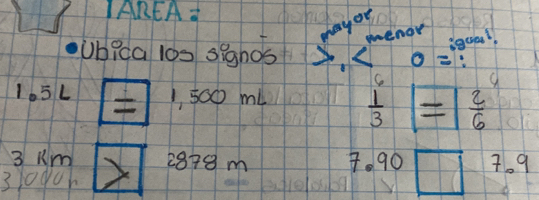 TAREA:
• Ubica los signos >, < o = :
mayor menor igual
1.5 L = 1,500 mL 1/3 = 2/6
3 Km > 2878 m 7.90 7.9
3,000m